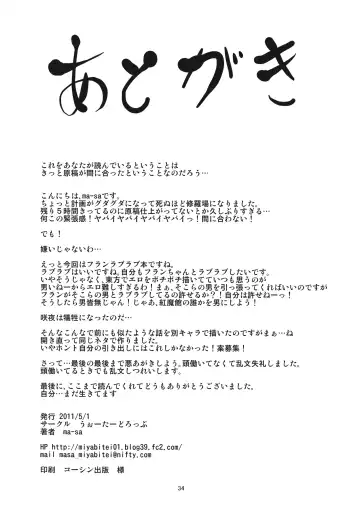 あとがき
これをあなたが読んでいるということは
きっと原稿が間に合ったということなのだろう…
こんにちは､ma-saです。
ちょっと計画がグダグダになって死ぬほど修羅場になりました。
残り５時間きってるのに原稿仕上がってないとか久しぶりすぎる…
何この緊張感！ヤバイヤバイヤバイヤバイっ！間に合わない！
でも！
嫌いじゃないわ…
えっと今回はフランラブラブ本ですね。
ラブラブはいいですね｡自分もフランちゃんとラブラブしたいです。
いやそうじゃなく、東方でエロをボチボチ描いていつも思うのが
男いねーからエロ難しすぎるわ！まぁ､そこらの男を引っ張ってくればいいのですが
フランがそこらの男とラブラブしてるの許せるか？！自分は許せねーっ！
そうしたら男皆無じゃん！じゃあ､紅魔館の誰かを男にしよう！
咲夜は犠牲になったのだ…
そんなこんなで前にも似たような話を別キャラで描いたのですがまぁ…ね
開き直って同じネタで作りました。
いやホント自分の引き出しにはこれしかなかった！案募集！
さって…最後の最後まで悪あがきしよう。頭働いてなくて乱文失礼しました。
頭働いてるときでも乱文でつれいします。
最後に､ここまで読んでくれてどうもありがとうございました。
自分…まだ生きてます
発行 2011/5/1
サークル うぉーたーどろっぷ
著者 ma-sa
HP http://miyabitei01.blog39.fc2.com/
mail masa_miyabitei@nifty.com
印刷 コーシン出版 様
34